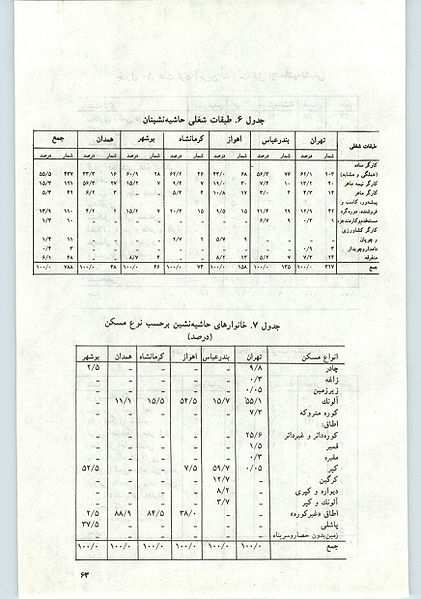 جدول ۶. طبقات شغلی حاشیه‌نشینان
طبقات شغلی تهران بندرعباس اهواز کرمانشاه بوشهر همدان جمع
شمار درصد شمار درصد شمار درصد شمار درصد شمار درصد شمار درصد شمار درصد
کارگر ساده
(عملگی و مشابه) ۲۰۳ ۶۲/۱ ۷۶ ۵۶/۳ ۶۸ ۴۳/۰ ۴۶ ۶۲/۲ ۲۸ ۶۰/۹ ۱۶ ۳۳/۳ ۴۳۷ ۵۵/۵
کارگر نیمه ماهر ۴۰ ۱۲/۲ ۱۰ ۷/۴ ۳۰ ۱۹/۰ ۷ ۹/۲ ۷ ۱۵/۲ ۲۷ ۵۶/۳ ۱۲۱ ۱۵/۳
کارگر ماهر ۱۴ ۴/۳ ۴ ۳/۰ ۱۷ ۱۰/۸ ۴ ۵/۴ – – ۳ ۶/۲ ۴۲ ۵/۳
پیشه‌ور، کاسب و
فروشنده، دوره‌گرد ۴۲ ۱۲/۹ ۲۹ ۲۱/۴ ۱۵ ۹/۵ ۱۵ ۲۰/۳ ۷ ۱۵/۲ ۲ ۴/۲ ۱۱۰ ۱۳/۹
مستخدم‌وکارمندجزء ۱ ۰/۳ ۹ ۶/۷ – – – – – – – – ۱۰ ۱/۳
کارگر کشاورزی
و چوپان – – – – ۹ ۵/۷ ۲ ۲/۷ – – – – ۱۱ ۱/۴
دامدار و چوبدار ۳ ۰/۹ – – – – – – – – – – ۳ ۰/۴
متفرقه ۲۴ ۷/۳ ۷ ۵/۲ ۱۳ ۸/۲ – – ۴ ۸/۷ – – ۴۸ ۶/۱
جمع ۳۲۷ ۱۰۰/۰ ۱۳۵ ۱۰۰/۰ ۱۵۸ ۱۰۰/۰ ۷۴ ۱۰۰/۰ ۴۶ ۱۰۰/۰ ۴۸ ۱۰۰/۰ ۷۸۸ ۱۰۰/۰
جدول ۷. خانوارهای حاشیه‌نشین برحسب نوع مسکن
(درصد)
انواع مسکن تهران بندرعباس اهواز کرمانشاه همدان بوشهر
چادر ۹/۸ – – – – ۲/۵
زاغه ۰/۳ – – – – –
زیرزمین ۰/۰۵ – – – – –
آلونک ۵۵/۱ ۱۵/۷ ۵۴/۵ ۱۵/۵ ۱۱/۱ –
کوره متروکه ۷/۳ – – – – –
اطاق:
کوره‌دائر و غیردائر ۲۵/۶ – – – – –
قمیر ۱/۵ – – – – –
مقبره ۰/۳ – – – – –
کپر ۰/۰۵ ۵۹/۷ ۷/۵ – – ۵۲/۵
کرگین – ۱۲/۷ – – – –
دیواره و کپری – ۸/۲ – – – –
آلونک و کپر – ۳/۷ – – – –
اطاق «غیرکوره» – – ۳۸/۰ ۸۴/۵ ۸۸/۹ ۲/۵
پاشلی – – – – – ۳۷/۵
زمین‌بدون حصاروسرپناه – – – – – –
جمع ۱۰۰/۰ ۱۰۰/۰ ۱۰۰/۰ ۱۰۰/۰ ۱۰۰/۰ ۱۰۰/۰
۶۳